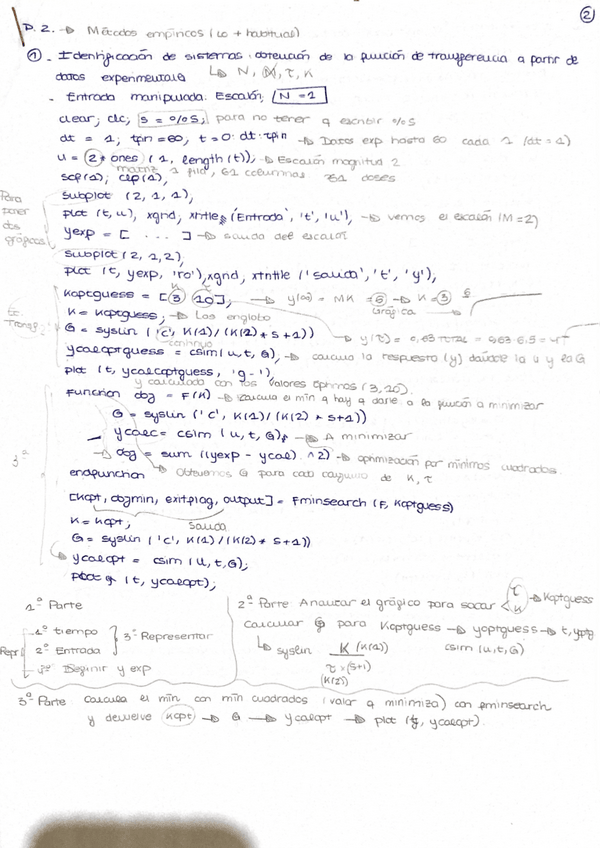 ②
P. 2. → Métodos empíricos (lo + habitual)
① - Identificación de sistemas: obtención de la función de transferencia a partir de
datos experimentales → N, M, τ, K
- Entrada manipulada: Escalón, N = 1
clear; clc; s = %s; para no tener q escribir %s
dt = 1; tfin = 60; t = 0: dt: tfin → Datos exp hasta 60 cada 1 (dt = 1)
u = 2 * ones (1, length (t)); → Escalón magnitud 2
matriz 1 fila, 61 columnas
scf(1); clf(1);
Para poner dos gráficas
subplot (2, 1, 1),
plot (t, u), xgrid, xtitle ('Entrada', 't', 'u'), → vemos el escalón (M = 2)
yexp = [ . . . ] → salida del escalón
subplot (2, 1, 2),
plot (t, yexp, 'ro'), xgrid, xtitle ('salida', 't', 'y'),
Koptguess = [3 10]; → y(∞) = MK = 6 → K = 3
Gráfica
K = Koptguess; → Los englobo
G = syslin ('c', K(1) / (K(2) * s + 1))
continuo
ycaloptguess = csim (u, t, G), → calcula la respuesta (y) dándole la u y la G
plot (t, ycaloptguess, 'g-'),
y calculada con los valores óptimos (3, 10).
3ª
function dog = F(K) → calcula el mín q hay q darle a la función a minimizar
G = syslin ('c', K(1) / (K(2) * s + 1))
ycal = csim (u, t, G), → A minimizar
dog = sum ((yexp - ycal) .^ 2) → optimización por mínimos cuadrados.
endfunction
Obtenemos G para cada conjunto de K, τ
[Kopt, dogmin, exitflag, output] = fminsearch (F, Koptguess)
Salida
K = Kopt;
G = syslin ('c', K(1) / (K(2) * s + 1))
ycalopt = csim (u, t, G);
plot (t, ycalopt);
1ª Parte
Repr
1º tiempo
2º Entrada
3º Representar
Definir y exp
2ª Parte: Analizar el gráfico para sacar τ K → Koptguess
calcular G para Koptguess → yoptguess → t, yoptg
syslin K (K(1)) / τ × (s+1) (K(2))
csim (u, t, G)
3ª Parte: Calcula el mín con mín cuadrados (valor q minimiza) con fminsearch
y devuelve Kopt → G → ycalopt → plot (t, ycalopt).